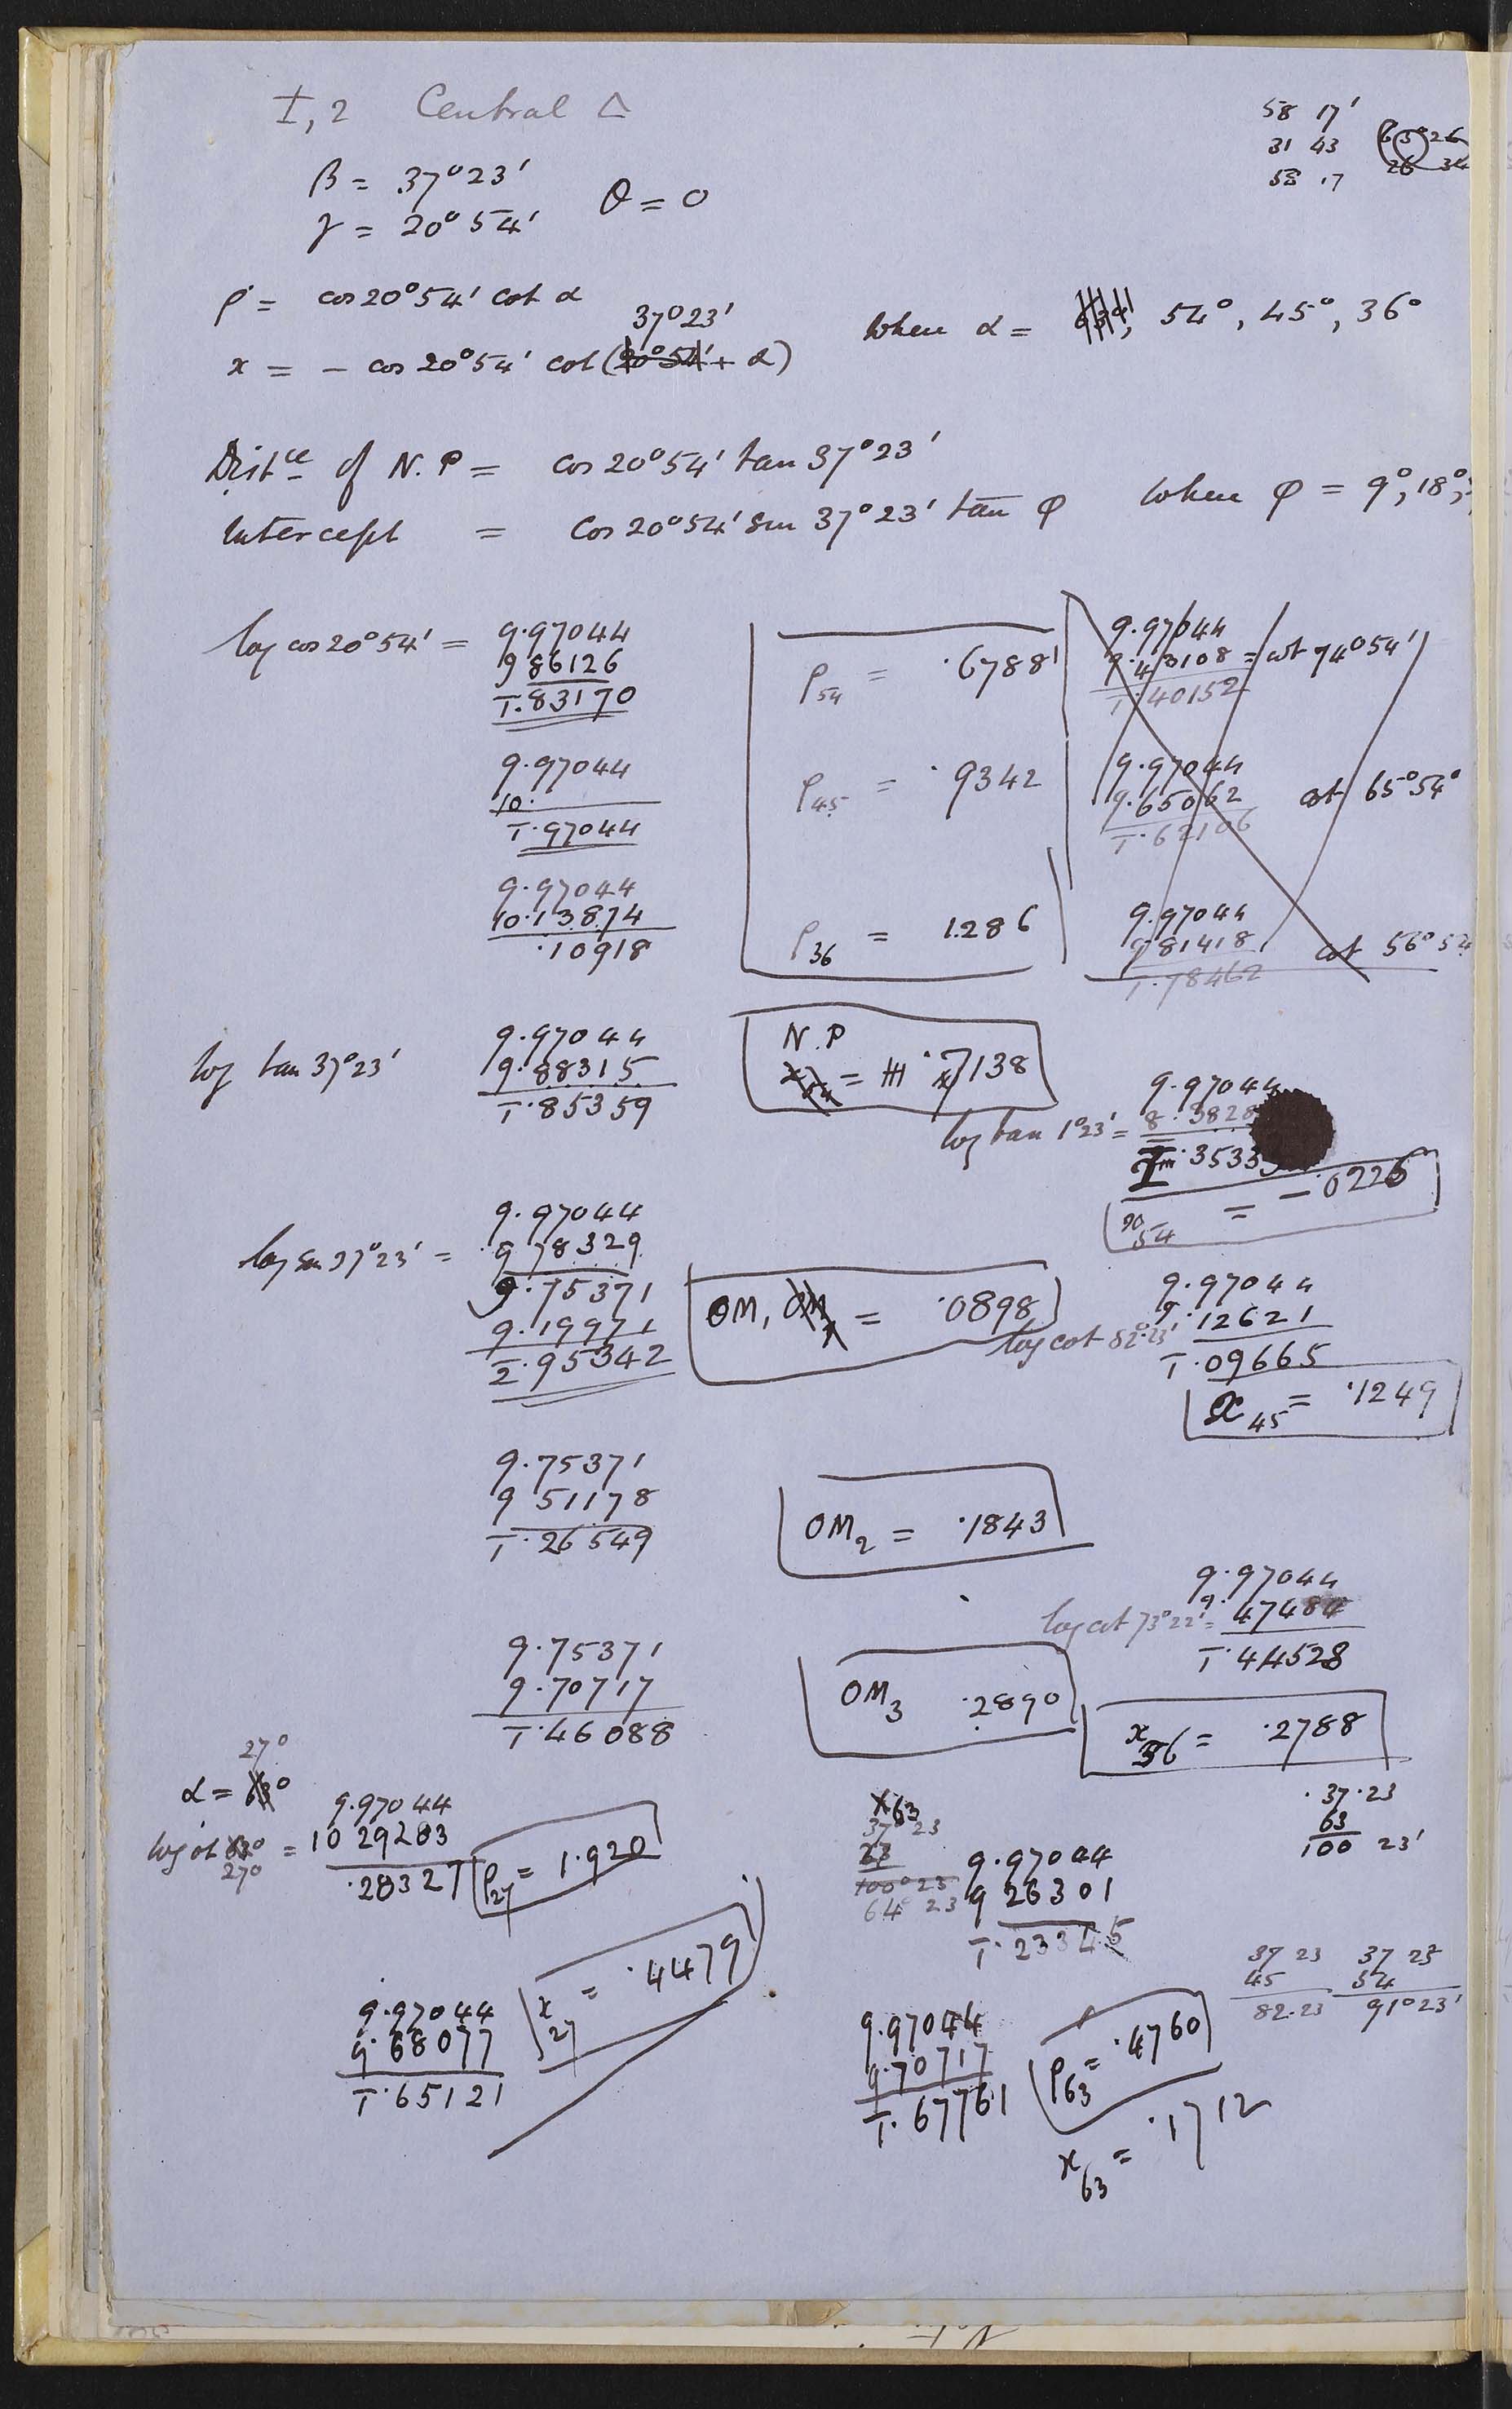 I, 2 Central △
58 17'
31 43
58 17
63° 26
26 34
β = 37°23'
γ = 20°54'
θ = 0
ρ = cos 20°54' cot α
37°23'
x = - cos 20°54' cot (20°54' + α)
when α = 54°, 45°, 36°
Distce of N.P = cos 20°54' tan 37°23'
Intercept = cos 20°54' sin 37°23' tan φ when φ = 9°, 18°,
log cos 20°54' = 9.97044
9 86126
T.83170
9.97044
10.
T.97044
9.97044
10.13874
.10918
ρ54 = .6788
ρ45 = .9342
ρ36 = 1.286
9.97044
9.43108 = cot 74°54'
T.40152
9.97044
9.65062 cot 65°54°
T.62106
9.97044
9 81418 cot 56°54
T.78462
log tan 37°23'
9.97044
9.88315
T.85359
N.P
x54 = .7138
9.97044
log tan 1°23' = 8.3828
.3533
x54 = -.0226
log sin 37°23' =
9.97044
9 78329
9.75371
9.19971
2.95342
OM, OM1 = .0898
9.97044
log cot 82°23' 9.12621
T.09665
x45 = .1249
9.75371
9 51178
T.26549
OM2 = .1843
9.97044
log cot 73°22' = 9.47484
T.44528
9.75371
9.70717
T.46088
OM3 .2890
x36 = .2788
27°
α = 63°
log cot 63° =
27°
9.97044
10 29283
.28327
ρ27 = 1.920
x63
37° 23
27
100° 23
64 23
9.97044
9 26301
T.23345
37.23
63
100 23'
x27 = .4479
9.97044
9.68077
T.65121
9.97044
9.70717
T.67761
ρ63 = .4760
x63 = .1712
37 23
45
82.23
37 23
54
91°23'